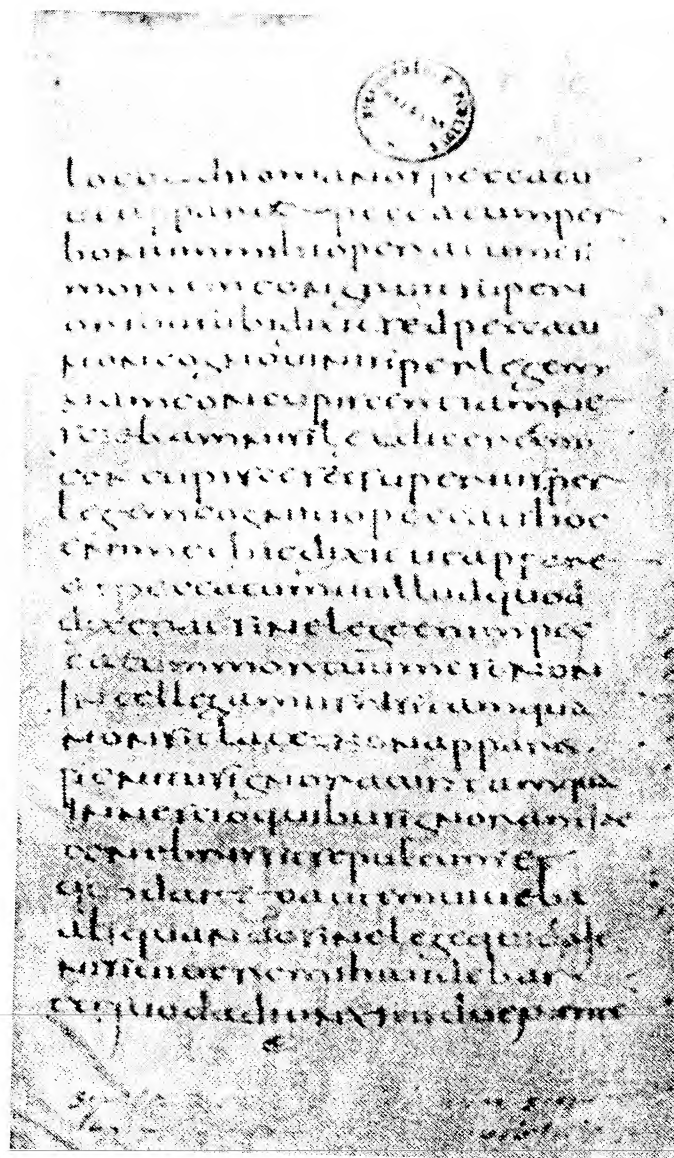 loco ad romanos peccatu
ut appareat peccatum per
bonum mihi operatum est
mortem congruit superi
oribus ubi dixit sed peccatu
non cognoui nisi per legem
nam concupiscentiam ne
sciebam nisi lex diceret non
concupisces et superius per
legem cognitio peccati hoc
enim et hic dixit ut appare
at peccatum ut illud quod
dixerat sine lege enim pec
catum mortuum est non
intellegamus nisi tamqua
non sit latet non apparet
penitus ignoratur tamqua
in nescio quibus ignorantiae
tenebris sit sepultum et
quod ait ego autem uiueba
aliquando sine lege quid ait
nisi uiuere mihi uidebar
et quod adiunxit